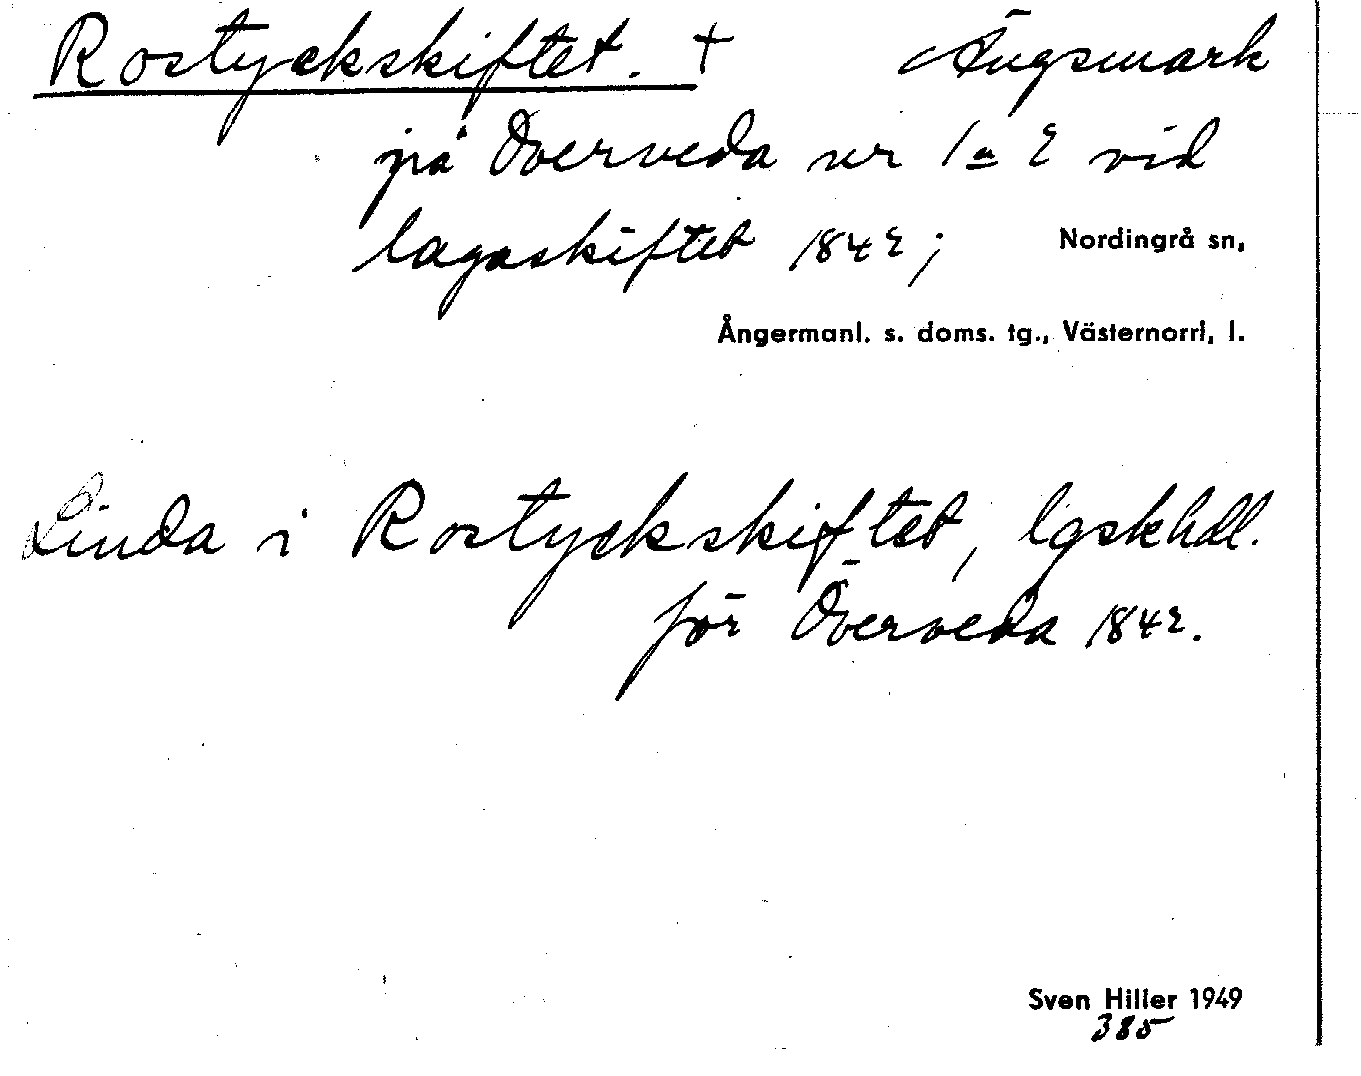 Rostyckskiftet. + Ängsmark
på Överveda nr 1 a 2 vid
lagaskiftet 1842; Nordingrå sn,
Ångermanl. s. doms. tg., Västernorrl, l.
Linda i Rostyckskiftet, lgskhdl.
för Överveda 1842.
Sven Hiller 1949
385